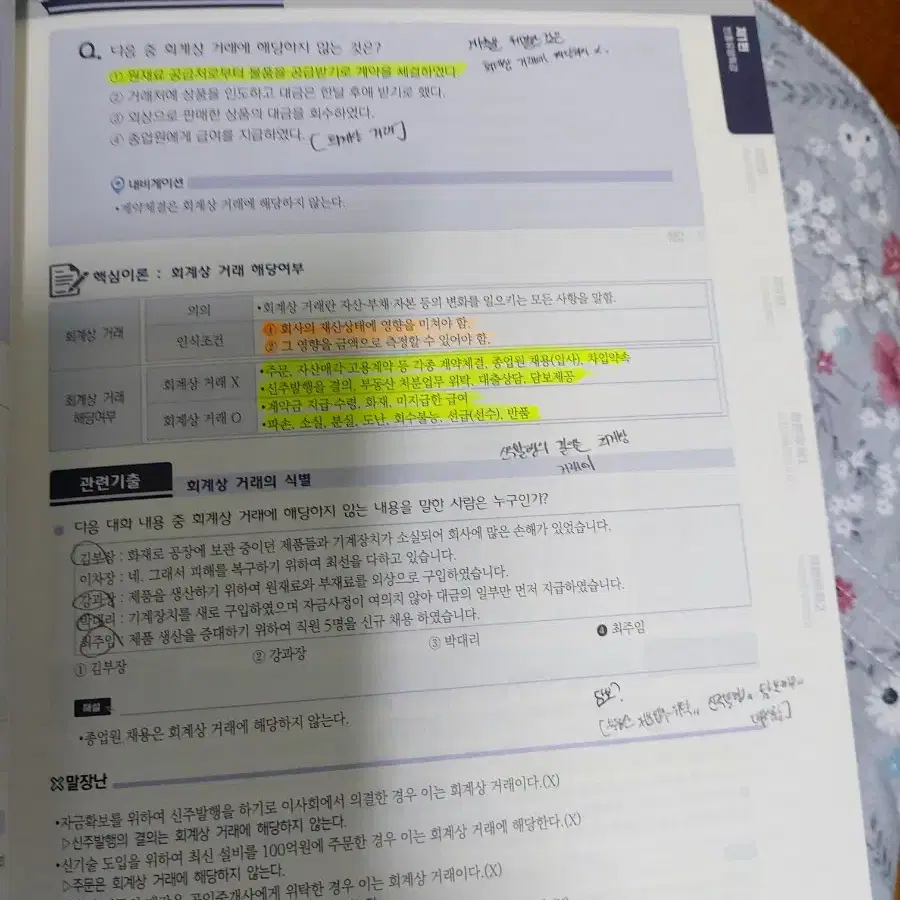 Q. 다음 중 회계상 거래에 해당하지 않는 것은?
① 원재료 공급처로부터 물품을 공급받기로 계약을 체결하였다.
② 거래처에 상품을 인도하고 대금은 한달 후에 받기로 했다.
③ 외상으로 판매한 상품의 대금을 회수하였다.
④ 종업원에게 급여를 지급하였다.
내비게이션
•계약체결은 회계상 거래에 해당하지 않는다.
핵심이론 : 회계상 거래 해당여부
회계상 거래
의의
•회계상 거래란 자산·부채·자본 등의 변화를 일으키는 모든 사항을 말함.
인식조건
① 회사의 재산상태에 영향을 미쳐야 함.
② 그 영향을 금액으로 측정할 수 있어야 함.
회계상 거래 해당여부
회계상 거래 X
•주문, 자산매각·고용계약 등 각종 계약체결, 종업원 채용(인사), 차입약속
•신주발행을 결의, 부동산 처분업무 위탁, 대출상담, 담보제공
회계상 거래 O
•계약금 지급·수령, 화재, 미지급한 급여
•파손, 소실, 분실, 도난, 회수불능, 선급(선수), 반품
관련기출 회계상 거래의 식별
다음 대화 내용 중 회계상 거래에 해당하지 않는 내용을 말한 사람은 누구인가?
김부장 : 화재로 공장에 보관 중이던 제품들과 기계장치가 소실되어 회사에 많은 손해가 있었습니다.
이차장 : 네. 그래서 피해를 복구하기 위하여 최선을 다하고 있습니다.
강과장 : 제품을 생산하기 위하여 원재료와 부재료를 외상으로 구입하였습니다.
박대리 : 기계장치를 새로 구입하였으며 자금사정이 여의치 않아 대금의 일부만 먼저 지급하였습니다.
최주임 : 제품 생산을 증대하기 위하여 직원 5명을 신규 채용 하였습니다.
① 김부장 ② 강과장 ③ 박대리 ❹ 최주임
해설
•종업원 채용은 회계상 거래에 해당하지 않는다.
말장난
•자금확보를 위하여 신주발행을 하기로 이사회에서 의결한 경우 이는 회계상 거래이다.(X)
▷신주발행의 결의는 회계상 거래에 해당하지 않는다.
•신기술 도입을 위하여 최신 설비를 100억원에 주문한 경우 이는 회계상 거래에 해당한다.(X)
▷주문은 회계상 거래에 해당하지 않는다.
공인중개사에게 위탁한 경우 이는 회계상 거래이다.(X)